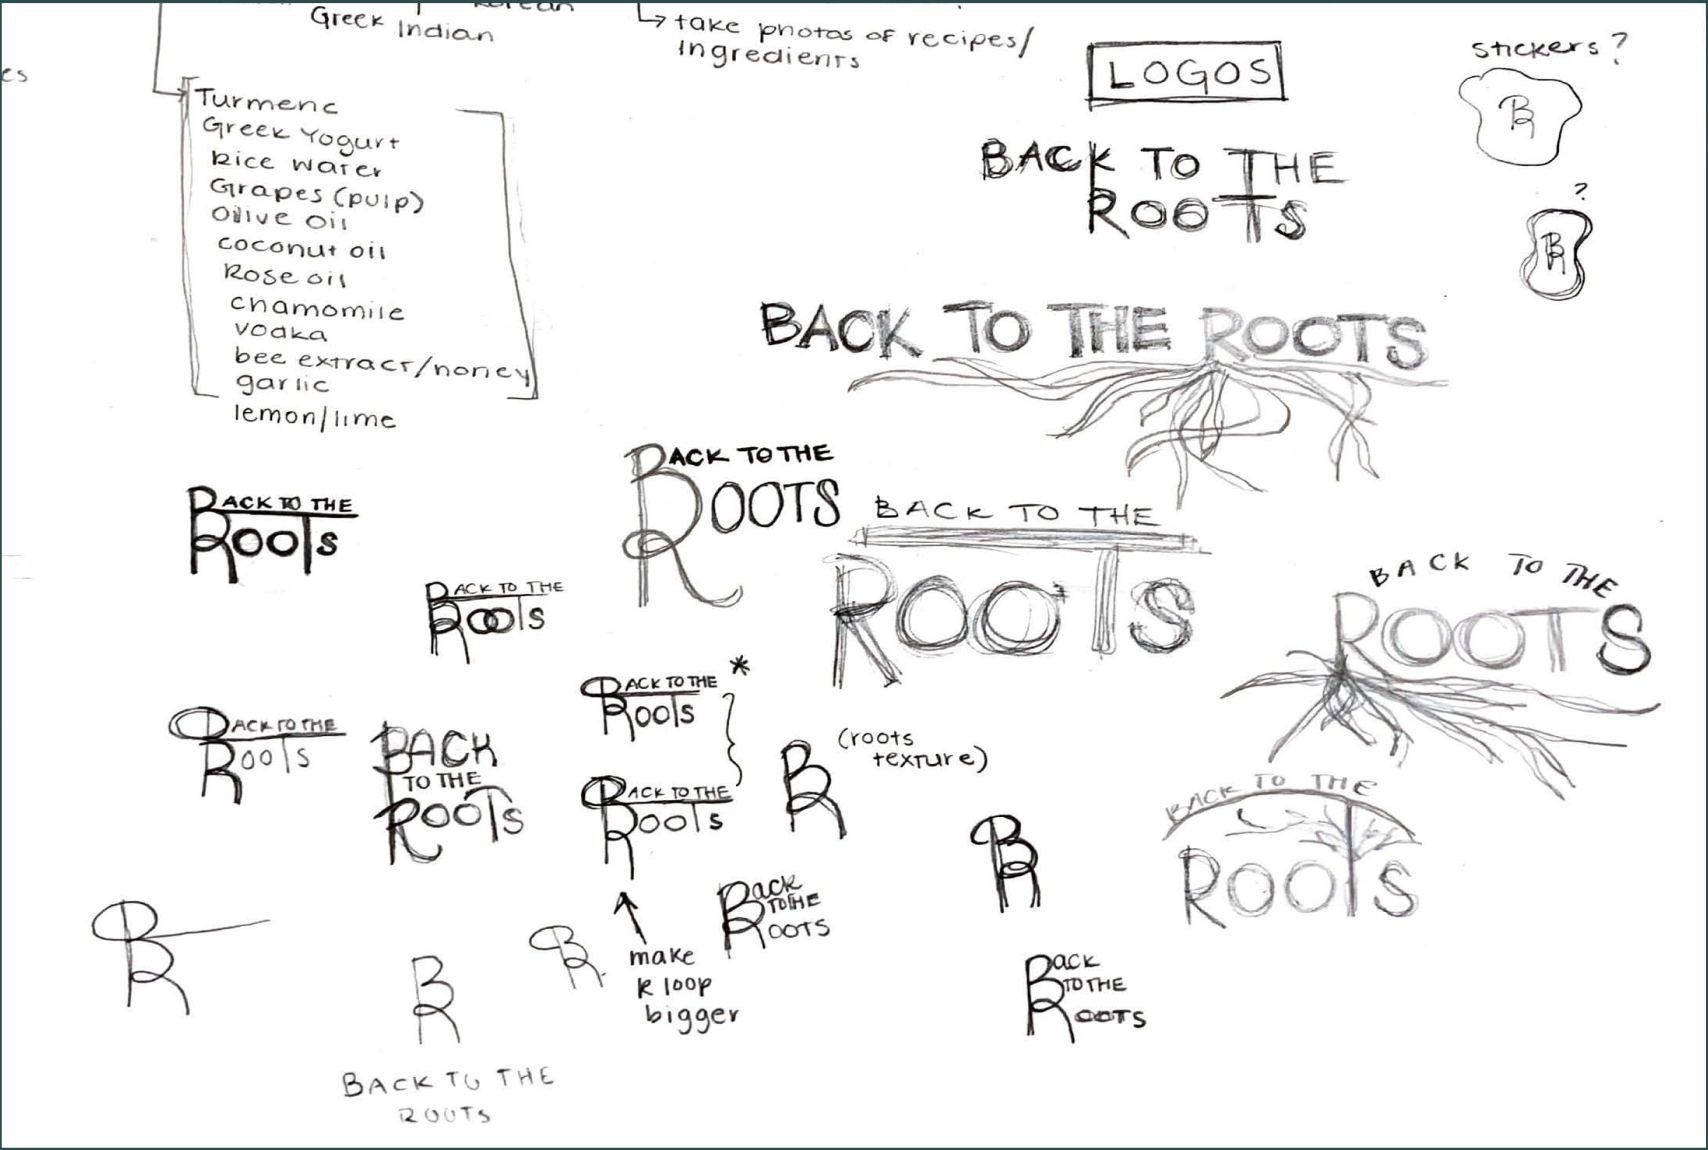 Greek Indian
Korean
es
↳ take photos of recipes/
Ingredients
Turmeric
Greek Yogurt
Rice water
Grapes (pulp)
Olive oil
coconut oil
Rose oil
chamomile
vodka
bee extract/honey
garlic
lemon/lime
LOGOS
stickers?
BR
?
BR
BACK TO THE
ROOTS
BACK TO THE ROOTS
BACK TO THE
ROOTS
BACK TO THE
ROOTS
BACK TO THE
ROOTS
BACK TO THE
ROOTS
BACK TO THE
ROOTS
BACK TO THE *
ROOTS
BACK TO THE
ROOTS
BACK
TO THE
ROOTS
BACK TO THE
ROOTS
make
R loop
bigger
BR
(roots
texture)
BACK TO THE
ROOTS
BR
Back
TO THE
ROOTS
Back
TO THE
ROOTS
BR
BR
BR
BACK TO THE
ROOTS